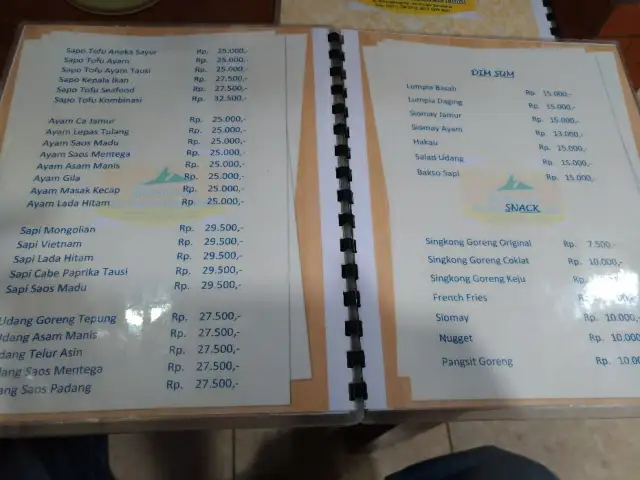 Sapo Tofu Aneka Sayur Rp. 25.000,-
Sapo Tofu Ayam Rp. 25.000,-
Sapo Tofu Ayam Tausi Rp. 25.000,-
Sapo Kepala Ikan Rp. 27.500,-
Sapo Tofu Seafood Rp. 27.500,-
Sapo Tofu Kombinasi Rp. 32.500,-
Ayam Ca Jamur Rp. 25.000,-
Ayam Lepas Tulang Rp. 25.000,-
Ayam Saos Madu Rp. 25.000,-
Ayam Saos Mentega Rp. 25.000,-
Ayam Asam Manis Rp. 25.000,-
Ayam Gila Rp. 25.000,-
Ayam Masak Kecap Rp. 25.000,-
Ayam Lada Hitam Rp. 25.000,-
Sapi Mongolian Rp. 29.500,-
Sapi Vietnam Rp. 29.500,-
Sapi Lada Hitam Rp. 29.500,-
Sapi Cabe Paprika Tausi Rp. 29.500,-
Sapi Saos Madu Rp. 29.500,-
Udang Goreng Tepung Rp. 27.500,-
dang Asam Manis Rp. 27.500,-
dang Telur Asin Rp. 27.500,-
ang Saos Mentega Rp. 27.500,-
ang Saos Padang Rp. 27.500,-
DIM SUM
Lumpia Basah Rp. 15.000,-
Lumpia Daging Rp. 15.000,-
Siomay Jamur Rp. 15.000,-
Siomay Ayam Rp. 13.000,-
Hakau Rp. 15.000,-
Salad Udang Rp. 15.000,-
Bakso Sapi Rp. 15.000,-
SNACK
Singkong Goreng Original Rp. 7.500,-
Singkong Goreng Coklat Rp. 10.000,-
Singkong Goreng Keju Rp.
French Fries Rp.
Siomay Rp. 10.000,-
Nugget Rp. 10.000
Pangsit Goreng Rp. 10.00